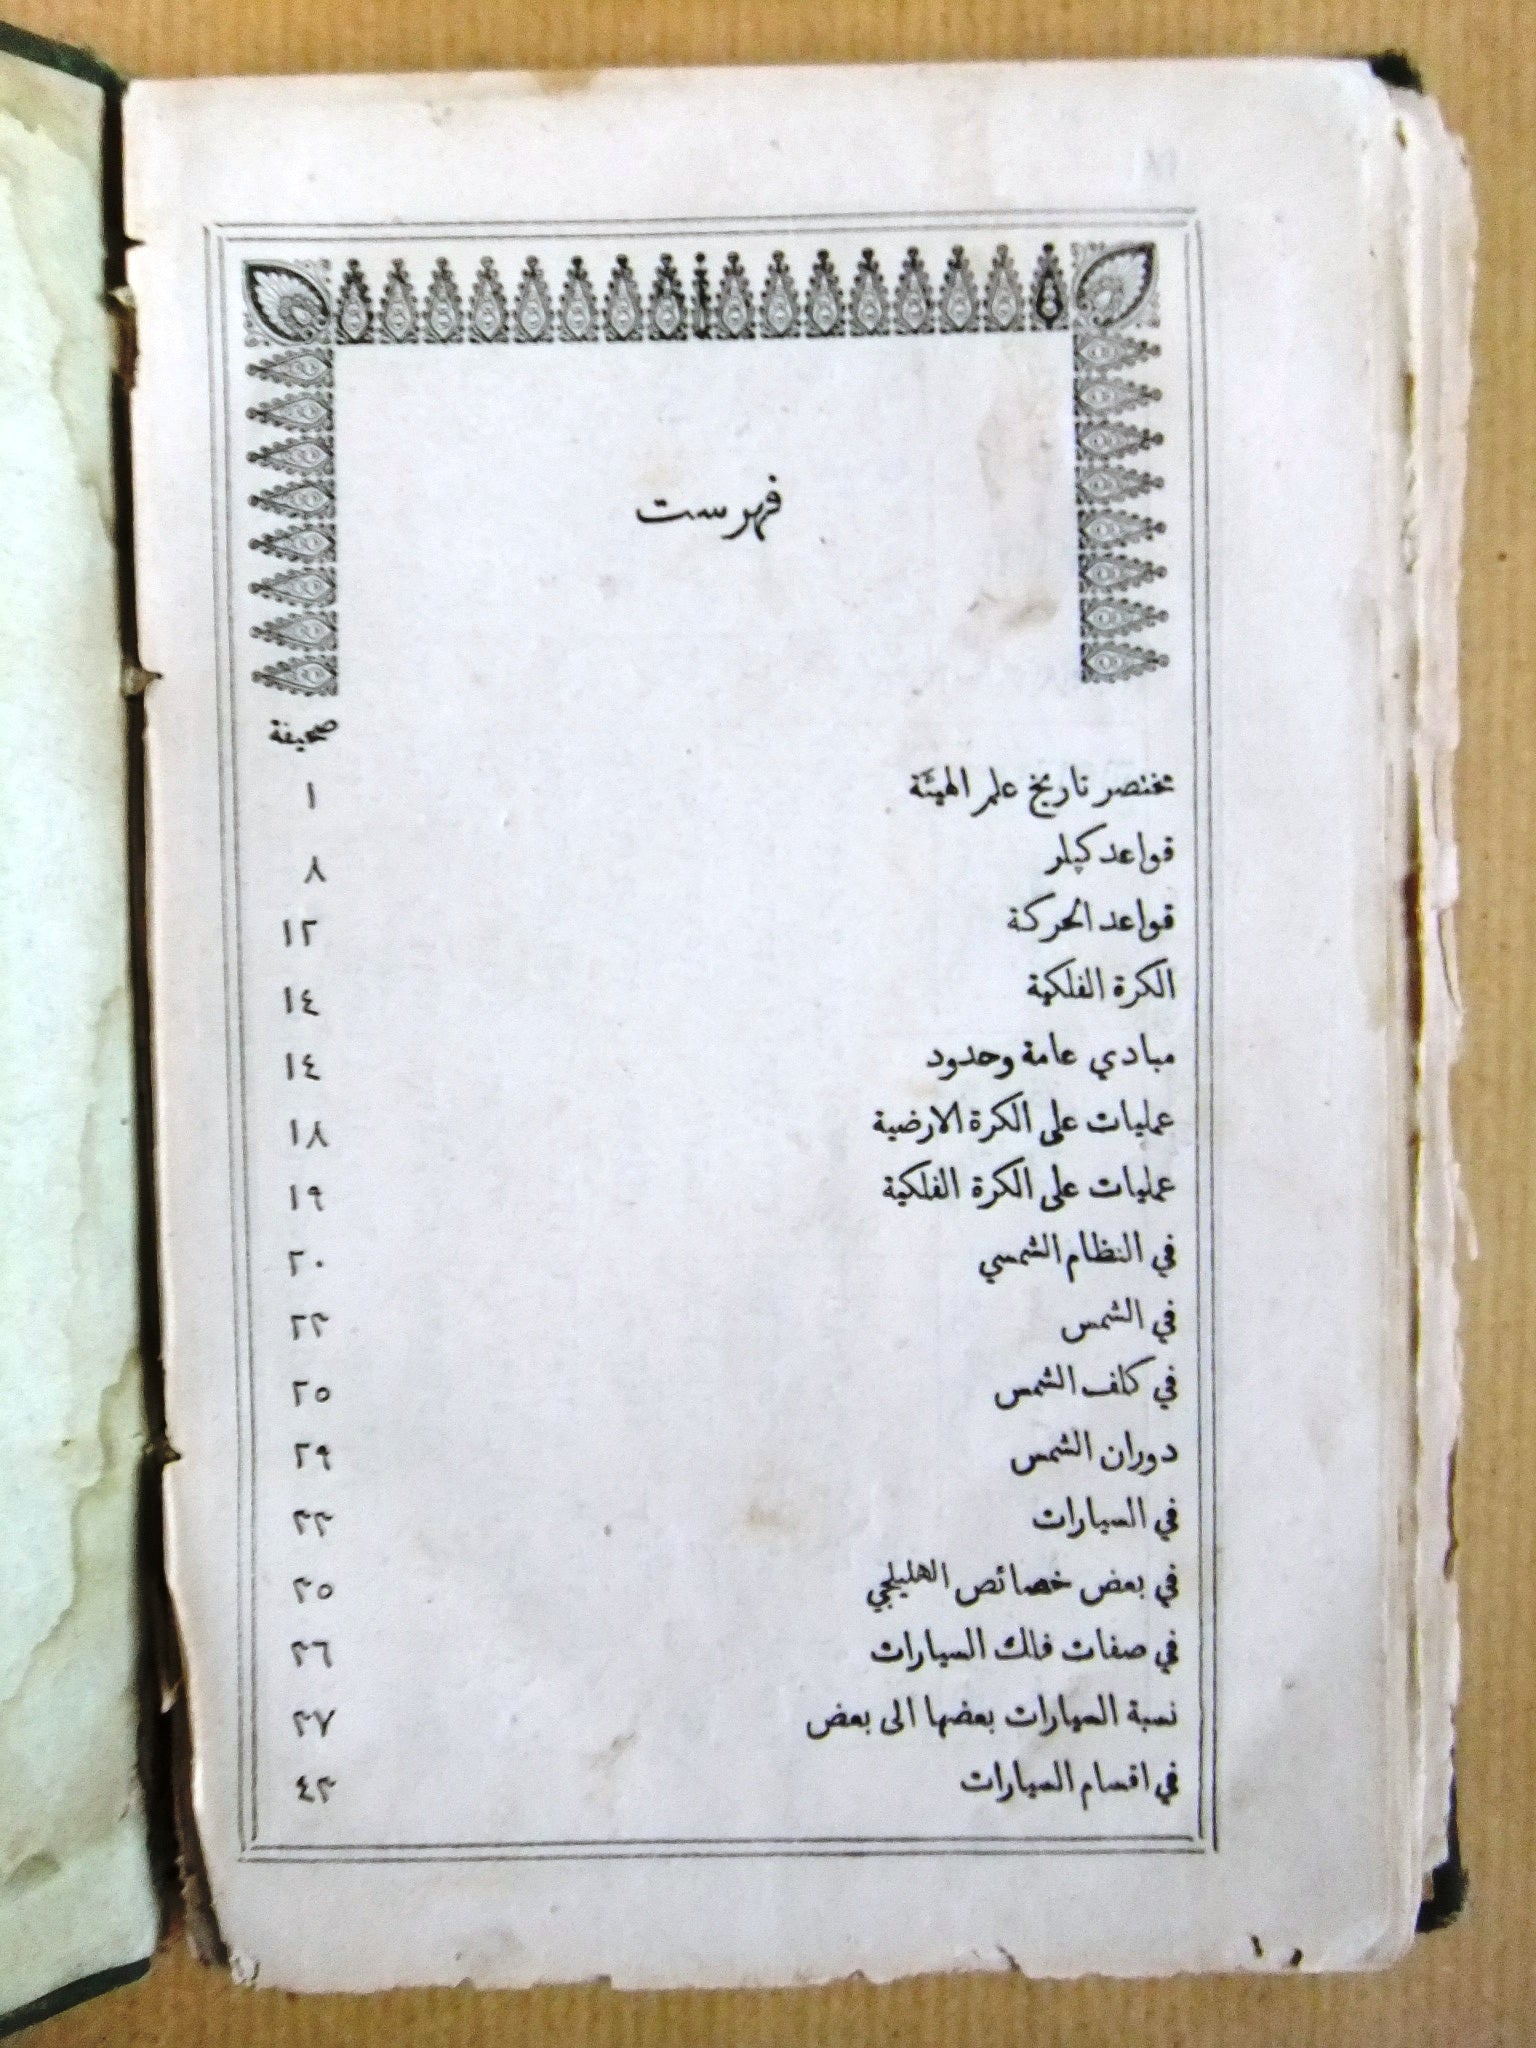 فهرست
صحيفة
مختصر تاريخ علم الهيئة ١
قواعد كپلر ٨
قواعد الحركة ١٢
الكرة الفلكية ١٤
مبادي عامة وحدود ١٤
عمليات على الكرة الارضية ١٨
عمليات على الكرة الفلكية ١٩
في النظام الشمسي ٢٠
في الشمس ٢٣
في كلف الشمس ٢٥
دوران الشمس ٢٩
في السيارات ٣٣
في بعض خصائص الهليلجي ٣٥
في صفات فلك السيارات ٣٦
نسبة السيارات بعضها الى بعض ٣٧
في اقسام السيارات ٤٣